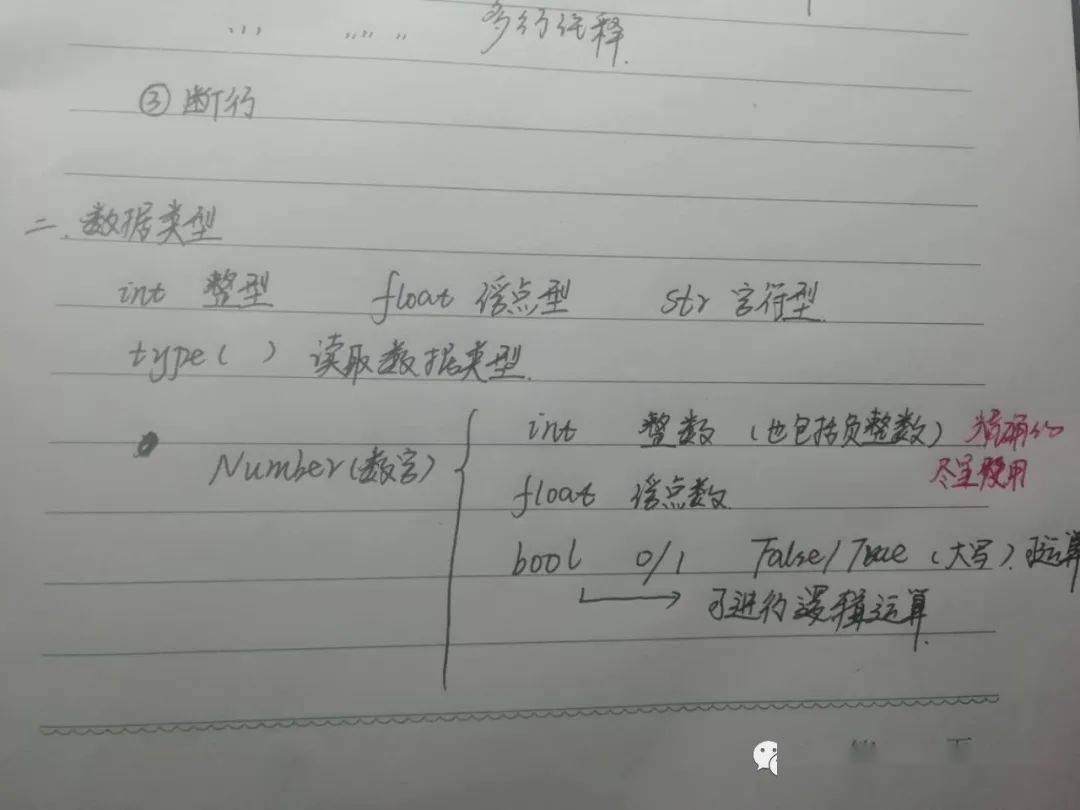 ''' """ 多行注释.
③ 断行
二. 数据类型
int 整型 float 浮点型 str 字符型.
type( ) 读取数据类型.
Number(数字) { int 整数 (也包括负整数) 精确的
尽量使用
float 浮点数.
bool 0/1 False/True (大写). 可运算
可进行逻辑运算.